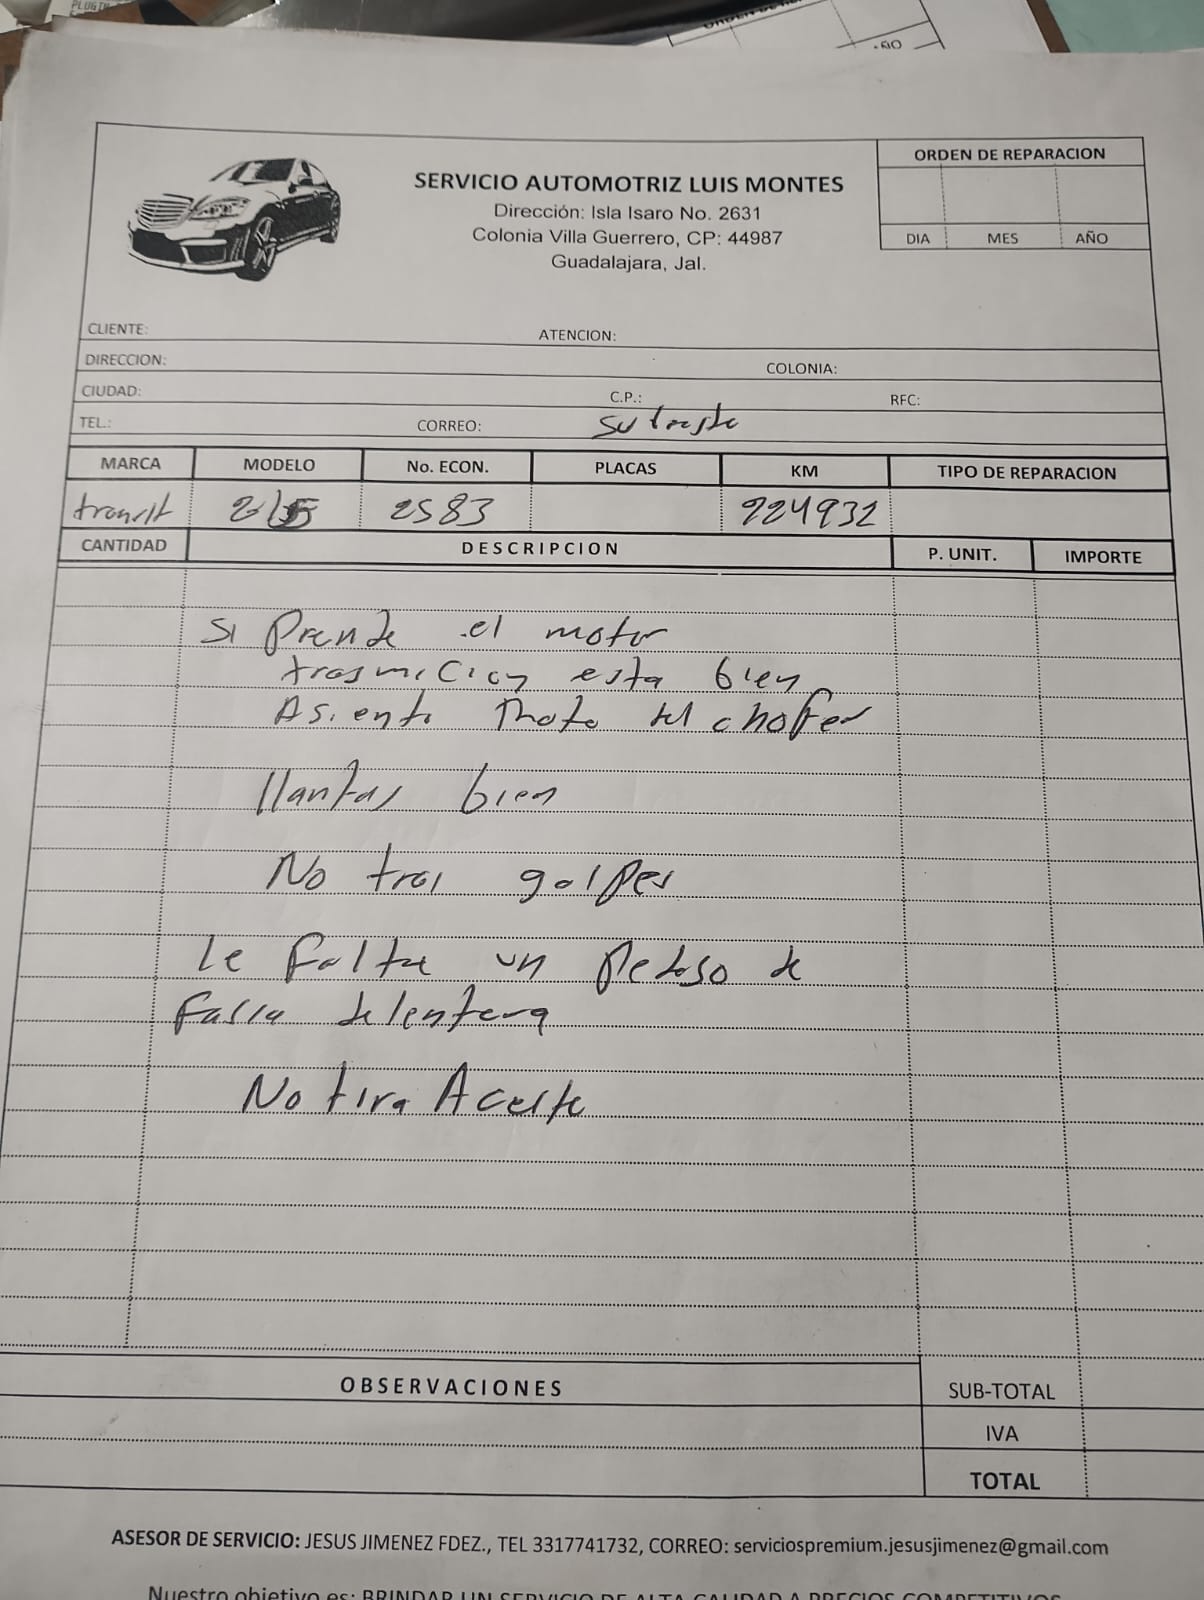 PLUGIN
AÑO
ORDEN DE REPARACION
SERVICIO AUTOMOTRIZ LUIS MONTES
Dirección: Isla Isaro No. 2631
Colonia Villa Guerrero, CP: 44987
Guadalajara, Jal.
DIA MES AÑO
CLIENTE: ATENCION:
DIRECCION: COLONIA:
CIUDAD: C.P.: RFC:
TEL.: CORREO:
MARCA MODELO No. ECON. PLACAS KM TIPO DE REPARACION
transit 2015 2583 224932
CANTIDAD DESCRIPCION P. UNIT. IMPORTE
Si Prende el motor
trasmicion esta bien
Asiento del chofer
llantas bien
No trai golpes
le falta un pedaso de
falla delentera
No tira Aceite
OBSERVACIONES SUB-TOTAL
IVA
TOTAL
ASESOR DE SERVICIO: JESUS JIMENEZ FDEZ., TEL 3317741732, CORREO: serviciospremium.jesusjimenez@gmail.com
Nuestro objetivo es: BRINDAR UN SERVICIO DE ALTA CALIDAD A PRECIOS COMPETITIVOS